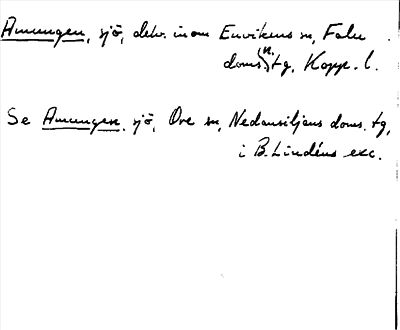 Amungen, sjö, delv. inom Envikens sn, Falu
doms. n. tg, Kopp. l.
Se Amungen, sjö, Ore sn, Nedansiljans doms. tg,
i B. Lindéns exc.